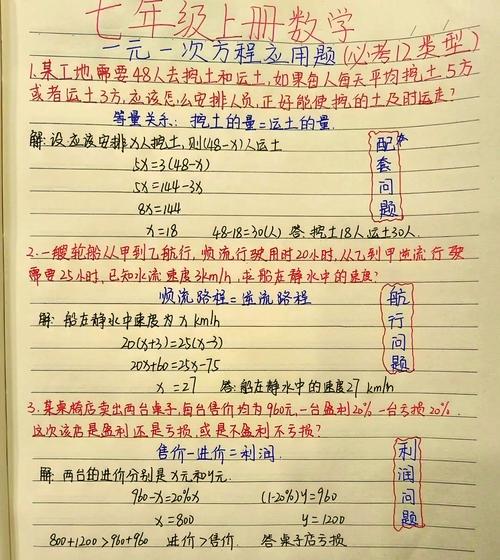 七年级上册数学
一元一次方程应用题(必考12类型)
1.某工地需要48人去挖土和运土,如果每人每天平均挖土5方
或者运土3方,应该怎么安排人员,正好能使挖的土及时运走?
等量关系:挖土的量=运土的量.
解:设应该安排x人挖土,则(48-x)人运土
5x=3(48-x)
5x=144-3x
8x=144
x=18 48-18=30(人) 答:挖土18人运土30人.
配套问题
2.一艘轮船从甲到乙航行,顺流行驶用时20小时,从乙到甲逆流行驶
需要25小时,已知水流速度3km/h,求船在静水中的速度?
顺流路程=逆流路程
解:船在静水中速度为x km/h
20(x+3)=25(x-3)
20x+60=25x-75
x=27 答:船在静水中的速度27 km/h
航行问题
3.某桌椅店卖出两台桌子,每台售价均为960元,一台盈利20%一台亏损20%.
这次该店是盈利还是亏损,或是不盈利不亏损?
售价-进价=利润.
解:两台的进价分别是x元和y元.
960-x=20%x (1-20%)y=960
x=800 y=1200
800+1200>960+960 进价>售价. 答:桌子店亏损
利润问题